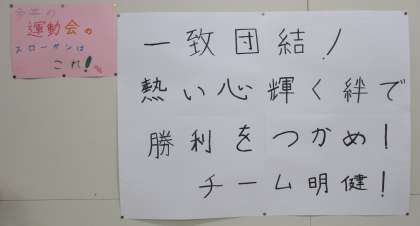 今年の
運動会の
スローガンは
これ!
一致団結!
熱い心輝く絆で
勝利をつかめ!
チーム明健!